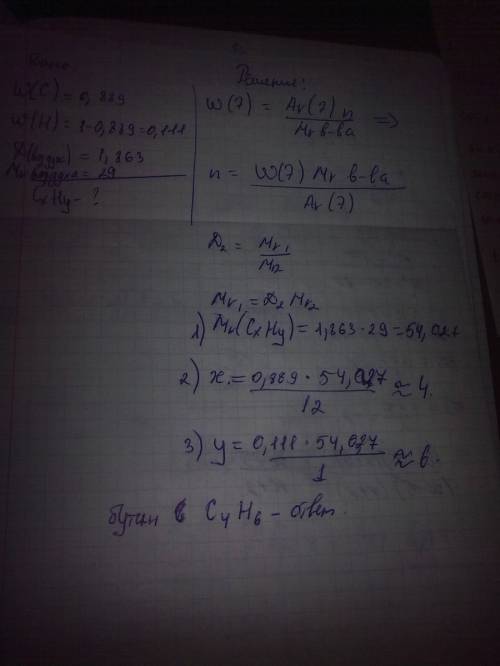 Дано
W(C) = 0,889
W(H) = 1-0,889=0,111
D(воздух) = 1,863
Mr воздуха = 29
CxHy - ?
Решение:
W(Э) = Ar(Э) n / Mr в-ва =>
n = W(Э) Mr в-ва / Ar(Э)
D₂ = Mr₁ / Mr₂
Mr₁ = D₂ Mr₂
1) Mr(CxHy) = 1,863·29=54,027
2) x = 0,889 · 54,027 / 12 ≈ 4.
3) y = 0,111 · 54,027 / 1 ≈ 6.
C₄H₆ - ответ.